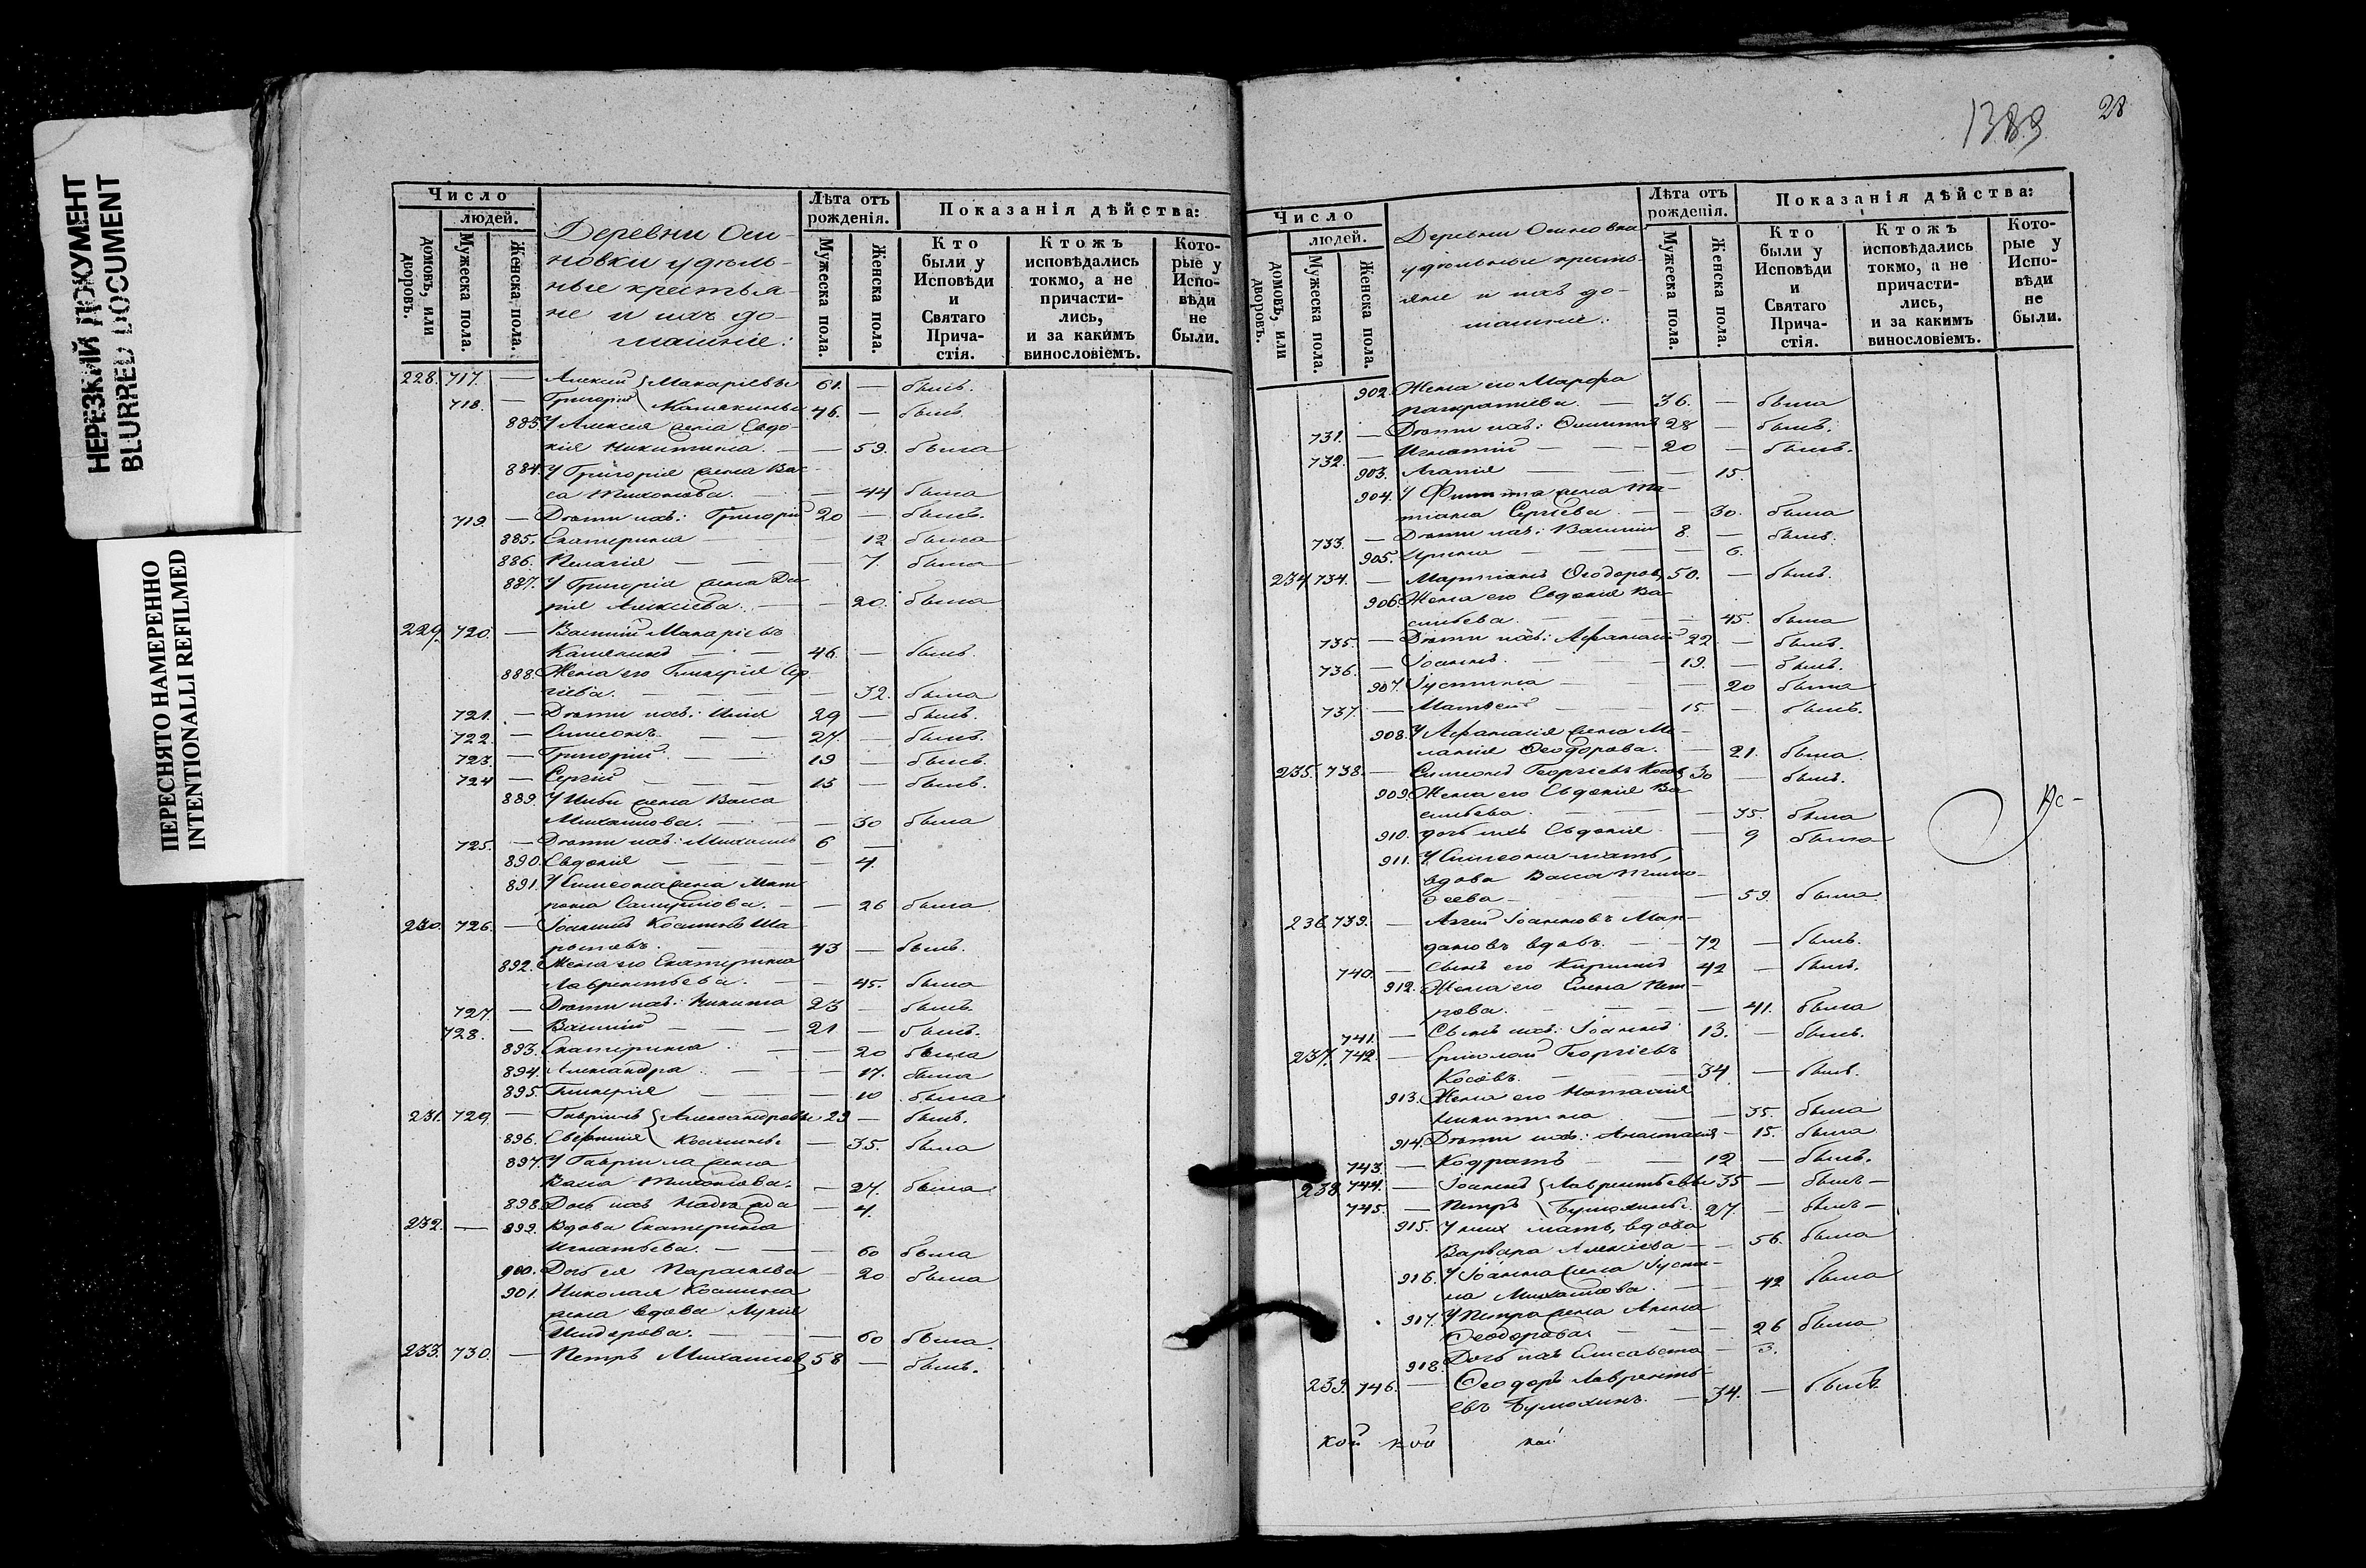 НЕРЕЗКИЙ ДОКУМЕНТ
BLURRED DOCUMENT
ПЕРЕСНЯТО НАМЕРЕННО
INTENTIONALLI REFILMED
Число
людей.
домовъ, или дворовъ.
Мужеска пола.
Женска пола.
Деревни Оси-
новки удѣль-
ные крестья-
не и ихъ до-
машніе:
Лѣта отъ рожденія.
Мужеска пола.
Женска пола.
Показанія дѣйства:
Кто были у Исповѣди и Святаго Прича-стія.
Ктожъ исповѣдались токмо, а не причасти-лись, и за какимъ винословіемъ.
Кото-рые у Испо-вѣди не были.
228. 717. — Алексій } Макаріевы 61. — былъ.
718. — Григорій 46. — былъ.
883. У Алексія жена Евдо-
кія Никитина. — — 59. была
884. У Григорія жена Вас-
са Тихонова. — — 44 была
719. — Дѣти ихъ: Григорій 20 — былъ.
885. Екатерина — — 12 была
886. Пелагія — — 7. была
887. У Григорія жена Да-
рія Алексіева. — — 20. была
229. 720. — Василій Макаріевъ
46. — былъ.
888. Жена его Гликерія Сер-
гіева. — — 32. была
721. — Дѣти ихъ: Илія 29 — былъ.
722. — Симеонъ. — — 27. — былъ.
723. — Григорій. — — 19 — былъ.
724 — Сергій — — 15 — былъ.
889. У Иліи жена Васса
Михаилова. — — 30 была
725. — Дѣти ихъ: Михаилъ 6 —
890. Евдокія — — 4.
891. У Симеона жена Мат-
рона — — 26 была
230. 726. — Іоанникій Косминъ
43 — былъ.
892. Жена его Екатерина
Лаврентьева. — — 45. была
727. — Дѣти ихъ: Никита 23 — былъ.
728. — Василій — — 21 — былъ.
893. Екатерина — — 20 была
894. Александра — — 17. была
895. Гликерія — — 10 была
231. 729. — Гавріилъ } Александровы 29 — былъ.
896. Косминъ — 35. была
897. У Гавріила жена
Васса Тихонова. — 27. была
898. Дочь ихъ Надежда — 4.
232. — 899. Вдова Екатерина
Игнатьева. — — 60 была
900. Дочь ея Параскева — 20 была
901. Николая Космина
жена вдова Лукія
— — 60 была.
233. 730. — Петръ Михаиловъ 58 — былъ.
1389
28
Число
людей.
домовъ, или дворовъ.
Мужеска пола.
Женска пола.
Деревни Осиновка
удѣльные кресть-
яне и ихъ до-
машніе:
Лѣта отъ рожденія.
Мужеска пола.
Женска пола.
Показанія дѣйства:
Кто были у Исповѣди и Святаго Прича-стія.
Ктожъ исповѣдались токмо, а не причасти-лись, и за какимъ винословіемъ.
Кото-рые у Испо-вѣди не были.
902. Жена его Марфа
Панкратіева. — 36. — была
731. — Дѣти ихъ: 28 — былъ.
732. — Игнатій — — 20 — былъ.
903. Агапія — — — 15.
904. У жена Та-
тіана Сергіева. — — 30. была
733. — Дѣти ихъ: Василій 8. — былъ.
905. Ирина — — — 6.
234. 734. — Мартіанъ Ѳеодоровъ 50. — былъ.
906. Жена его Евдокія Ва-
сильева. — — 45. была
735. — Дѣти ихъ: Аѳанасій 22. — былъ.
736. — Іоаннъ. — — 19. — былъ.
907. Іустина — — — 20 была
737. — Матѳей — — 15. — былъ.
908. У Аѳанасія жена Ме-
ланія Ѳеодорова. — 21. была
235. 738. — Симеонъ Георгіевъ Косовъ 30 — былъ.
909. Жена его Евдокія Ва-
сильева. — — 35. была
910. Дочь ихъ Евдокія — — 9 была
911. У Симеона мать,
вдова Васса Тимо-
ѳеева — — 59. была.
236. 739. — Аггей Іоанновъ
вдовъ. — 72 — былъ.
740. — Сынъ его Кириллъ 42 — былъ.
912. Жена его Елена Пет-
рова. — — 41. была
741. — Сынъ ихъ: Іоаннъ 13. — былъ.
237. 742. — Ермолай Георгіевъ
Косовъ. — 34. — былъ.
913. Жена его Наталія
Никитина — — 35. была
914. Дѣти ихъ: Анастасія — 15. была
743. — Кодратъ — — 12 — былъ.
238. 744. — Іоаннъ } Лаврентьевы 35 — былъ —
745. — Петръ 27. — былъ —
915. У нихъ мать, вдова
Варвара Алексіева — — 56. была
916. У Іоанна жена Іусти-
на Михаилова. — 42 была
917. У Петра жена Анна
Ѳеодорова — — 26 была
918. Дочь ихъ Елисавета — 3.
239. 746. — Ѳеодоръ Лаврентьевъ — 34. — былъ.